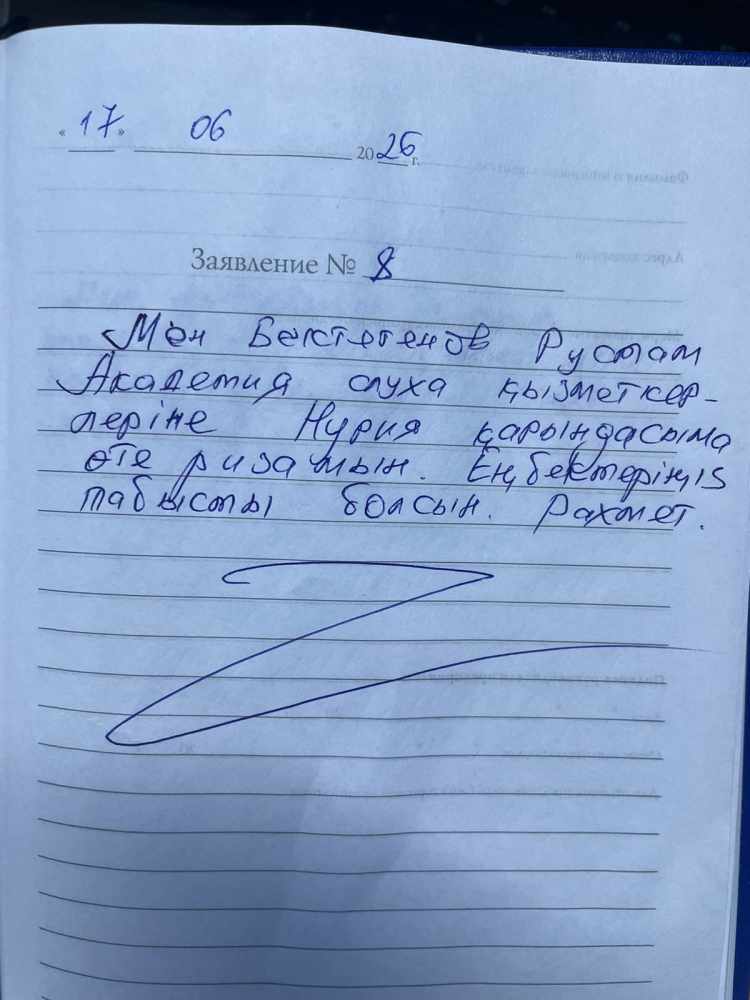 « 17 » 06 2026 г.
Заявление № 8
Мен Бектегенов Рустам
Академия слуха қызметкер-
леріне Нурия қарындасыма
өте ризамын. Еңбектеріңіз
табысты болсын. Рахмет.